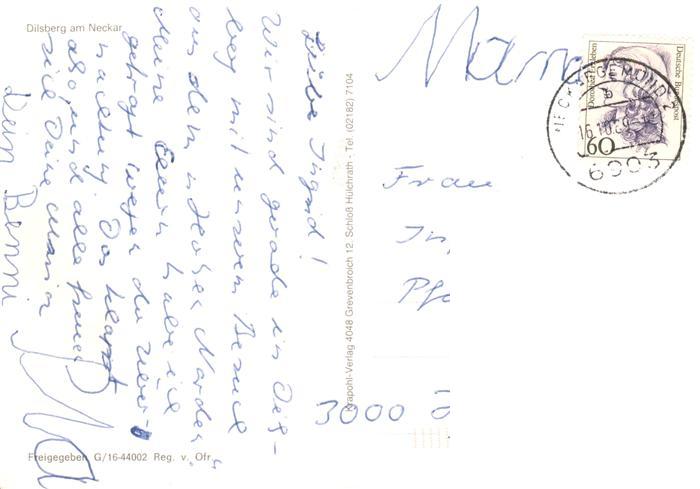 Dilsberg am Neckar
Liebe Ingrid!
Wir sind gerade in Dils-
berg mit unserem Besuch
aus dem "Hohen Norden".
Meine Eltern habe ich
gefragt wegen der Über-
nachtung. Das klappt
also, und alle freuen
sich. Deine Maria
Dein Benni
Freigegeben G/16-44002 Reg. v. Ofr.
Krapohl-Verlag 4048 Grevenbroich 12, Schloß Hülchrath - Tel. (02182) 7104
Mama
Frau
In
Pfa
3000
Deutsche Bundespost
60
NECKARGEMÜND 2
16.10.89
6903